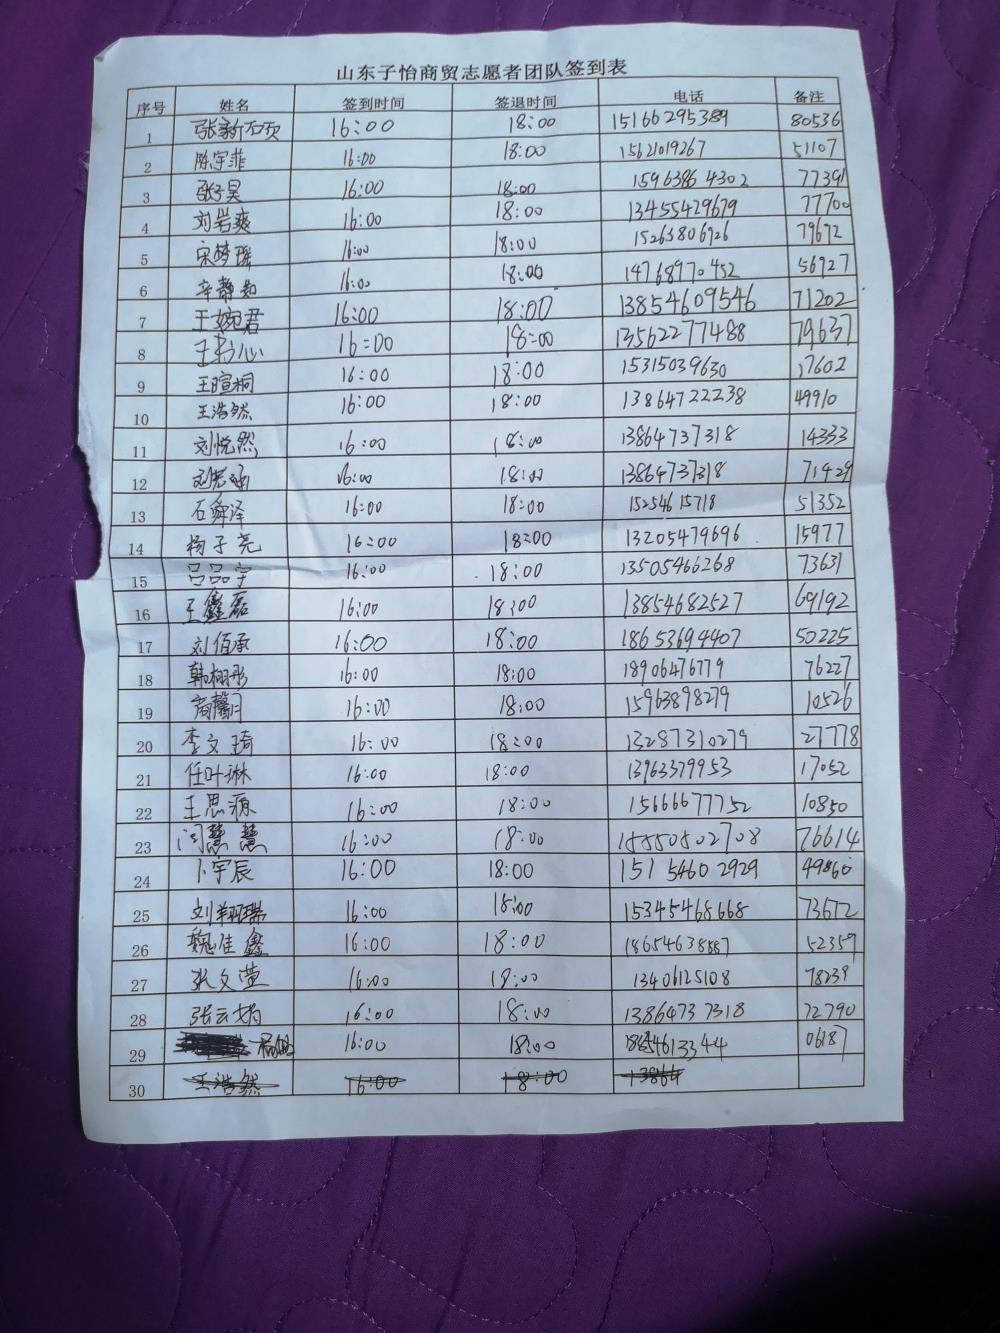 山东子怡商贸志愿者团队签到表
序号 姓名 签到时间 签退时间 电话 备注
1 16:00 18:00 15166295389 80536
2 陈宇菲 16:00 18:00 15621019267 51107
3 张子昊 16:00 18:00 15963864302 77391
4 刘岩爽 16:00 18:00 13455429679 77700
5 宋梦瑶 16:00 18:00 15263806926 79672
6 辛静如 16:00 18:00 14768970452 56927
7 王婉君 16:00 18:00 13854609546 71202
8 16:00 18:00 13562277488 79637
9 王暄桐 16:00 18:00 15315039630 17602
10 王浩然 16:00 18:00 13864722238 49910
11 刘悦然 16:00 18:00 13864737318 14333
12 16:00 18:00 13864737318 71429
13 石舜泽 16:00 18:00 15254615718 51352
14 杨子亮 16:00 18:00 13205479696 15977
15 吕品宇 16:00 18:00 13505466268 73631
16 王鑫磊 16:00 18:00 13854682527 69192
17 刘佰承 16:00 18:00 18653694407 50225
18 韩栩彤 16:00 18:00 18906476779 76227
19 16:00 18:00 15963898279 10526
20 李文琦 16:00 18:00 13287310279 27778
21 任叶琳 16:00 18:00 13963379953 17052
22 王思源 16:00 18:00 15666677752 10850
23 闫慧慧 16:00 18:00 76614
24 卜宇辰 16:00 18:00 15154602929 49860
25 刘翔瑞 16:00 18:00 15345468668 73672
26 魏佳鑫 16:00 18:00 52359
27 张文萱 16:00 18:00 13406125108 78239
28 16:00 18:00 13864737318 72790
29 16:00 18:00 06187
30 王浩然 16:00 18:00 13864